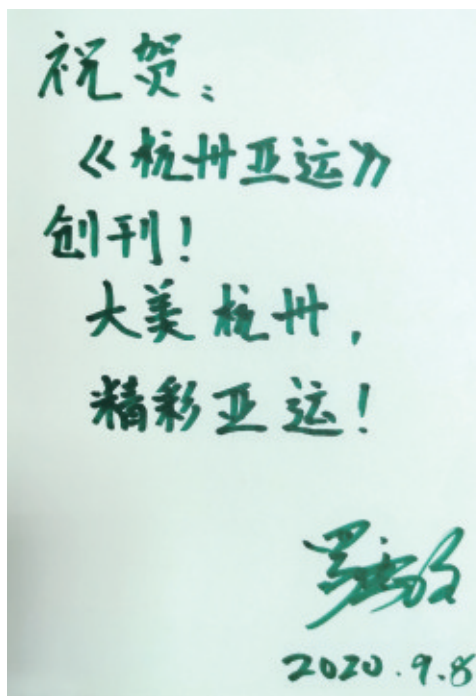 祝贺：
《杭州亚运》
创刊！
大美杭州，
精彩亚运！
2020.9.8